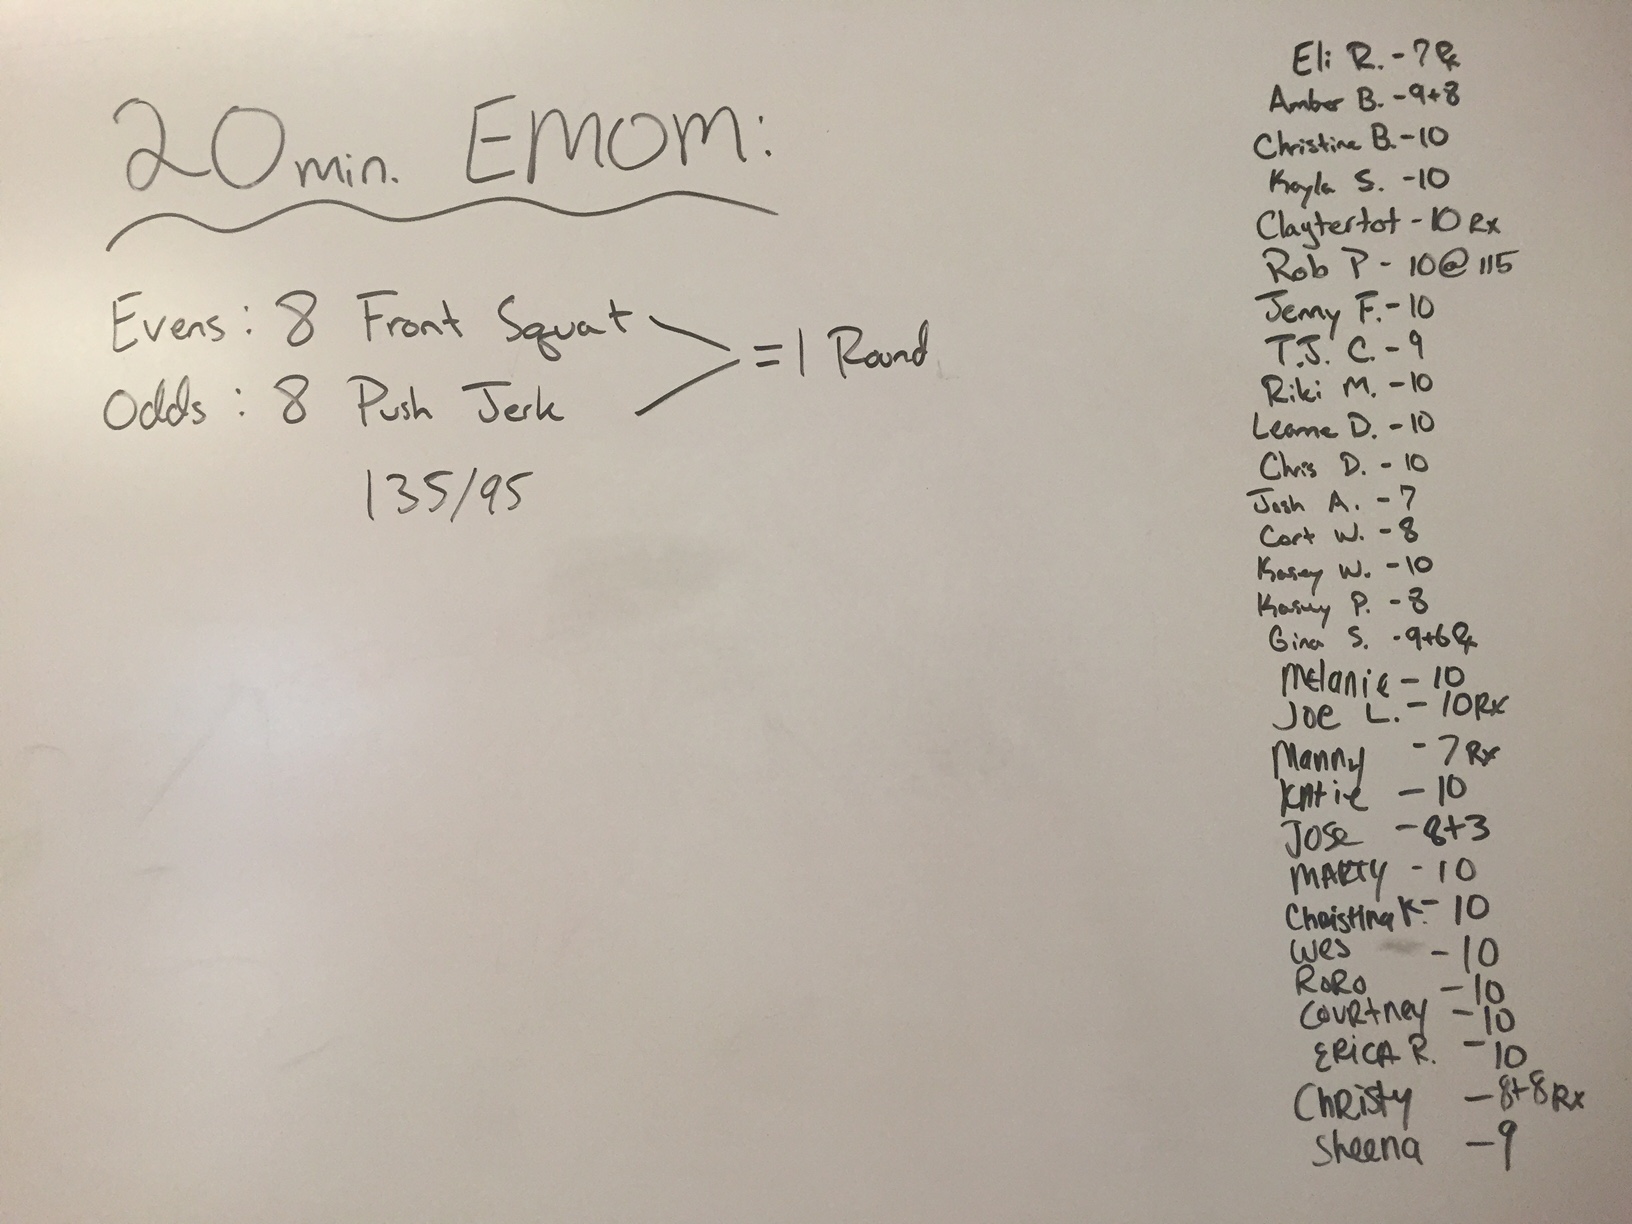 20 min. EMOM:
Evens: 8 Front Squat
Odds: 8 Push Jerk
= 1 Round
135/95
Eli R. - 7 Rx
Amber B. - 9+8
Christine B. - 10
Kayla S. - 10
Claytertot - 10 Rx
Rob P - 10 @ 115
Jenny F. - 10
T.J. C. - 9
Riki M. - 10
Leanne D. - 10
Chris D. - 10
Josh A. - 7
Cort W. - 8
Kasey W. - 10
Kasey P. - 8
Gina S. - 9+6 Rx
Melanie - 10
Joe L. - 10 Rx
Manny - 7 Rx
Katie - 10
Jose - 8+3
MARTY - 10
Christina K. - 10
Wes - 10
RoRo - 10
Courtney - 10
ERICA R. - 10
Christy - 8+8 Rx
Sheena - 9